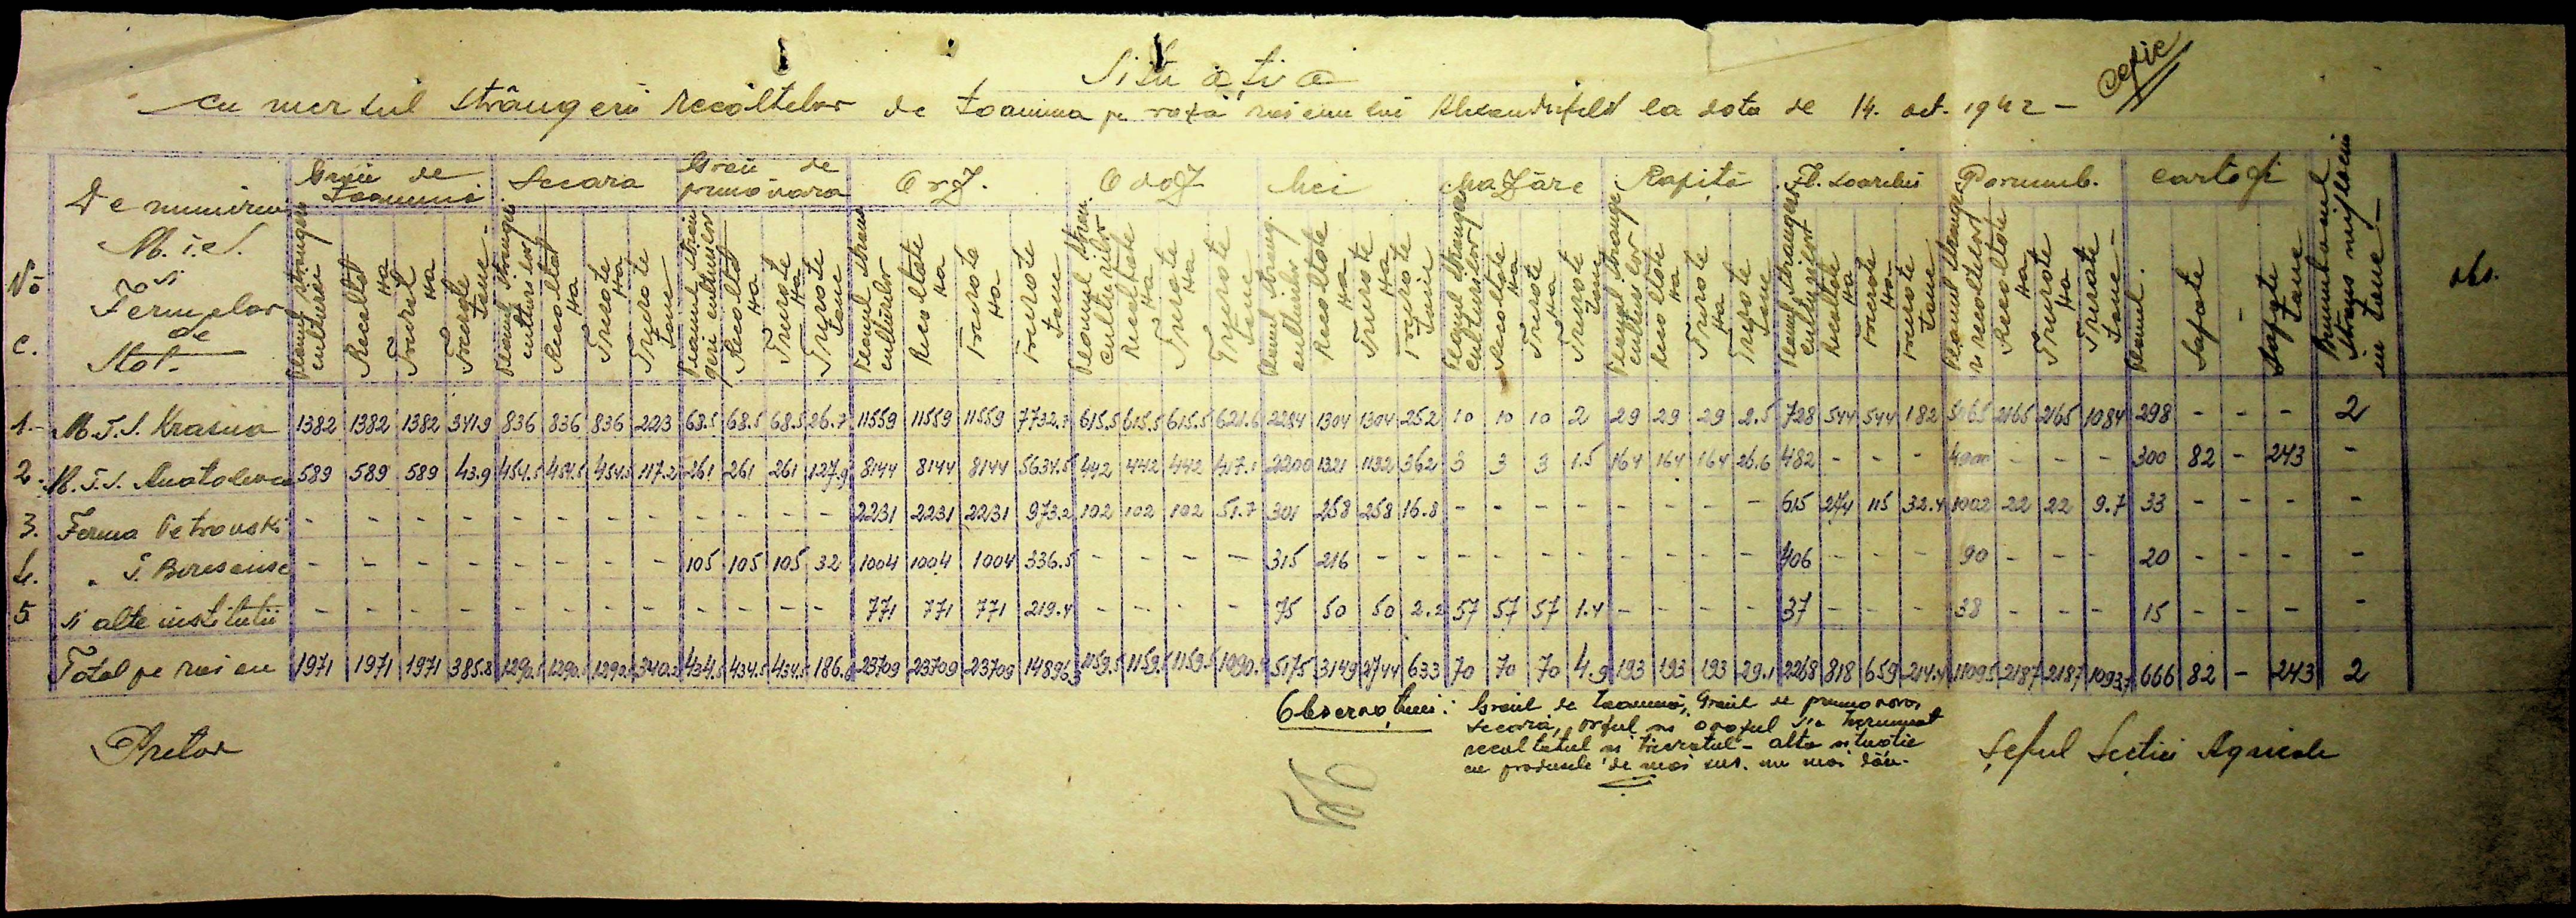 Situația
Copie
cu mersul strângerii recoltelor de toamna pe raza raionului Alexandrfeld la data de 14. oct. 1942 -
No c. | Denumirea M.T.S. si Fermelor de Stat. | Grâu de toamnă | Secara | Grâu de primăvara | Orz. | Ovăz | Mei | Mazăre | Rapiță | Fl. soarelui | Porumb. | cartofi | Bumbacul strâns nisflocin in tone - | Obs.
Planul strângerii culturii | Recoltat Ha | Trierat Ha | Trierate tone - | Planul strângerii culturilor | Recoltat Ha | Trierate Ha | Trierate tone | Planul strângerii culturilor | Recoltat Ha | Trierate Ha | Trierate tone | Planul strang culturilor | Recoltate Ha | Trierate Ha | Trierate tone | Planul strân. culturilor | Recoltate Ha | Trierate Ha | Trierate tone | Planul strâng. culturilor | Recoltate Ha | Trierate Ha | Trierate tone | Planul strângerii culturilor | Recoltate Ha | Trierate Ha | Trierate tone | Planul strânger culturilor | Recoltate Ha | Trierate Ha | Trierate tone | Planul strangerii culturilor | Recoltate Ha | Trierate Ha | Trierate tone | Planul strângerii recoltelor | Recoltate Ha | Trierate Ha | Trierate tone - | Planul. | Sapate | - | Sapate tone
1.- M.T.S. Krasna 1382 1382 1382 341.9 836 836 836 223 68.5 68.5 68.5 26.7 11559 11559 11559 7732.7 615.5 615.5 615.5 621.6 2284 1304 1304 252 10 10 10 2 29 29 29 2.5 728 544 544 182 2165 2165 1084 298 - - - 2
2. M.T.S. Anatolevca 589 589 589 43.9 454.5 454.5 454.5 117.2 261 261 261 127.9 8144 8144 8144 5634.5 442 442 442 417.1 2200 1321 1132 362 3 3 3 1.5 164 164 164 26.6 482 - - - 4000 - - - 300 82 - 243 -
3. Ferma Petrovski - - - - - - - - - - - - 2231 2231 2231 973.2 102 102 102 51.7 301 258 258 16.8 - - - - - - - - 615 274 115 32.4 1002 22 22 9.7 33 - - - -
4. " T. Boresense - - - - - - - - 105 105 105 32 1004 1004 1004 336.5 - - - - 315 216 - - - - - - - - - - 406 - - - 90 - - - 20 - - - -
5 si alte institutii - - - - - - - - - - - - 771 771 771 219.4 - - - - 75 50 50 2.2 57 57 57 1.4 - - - - 37 - - - 38 - - - 15 - - - -
Total pe raion 1971 1971 1971 385.8 1290.5 1290.5 1290.5 340.2 434.5 434.5 434.5 186.6 23709 23709 23709 14896.3 1159.5 1159.5 1159.5 1090.4 5175 3149 2744 633 70 70 70 4.9 193 193 193 29.1 2268 818 659 214.4 11095 2187 2187 1093.7 666 82 - 243 2
Observațiuni: Grâul de toamnă, Grâul de primavara,
secară, orzul si ovazul s'a terminat
recoltatul si trieratul - alta situatie
cu produsele de mai sus. nu mai dăm.
Pretor
Șeful Secției Agricole
56